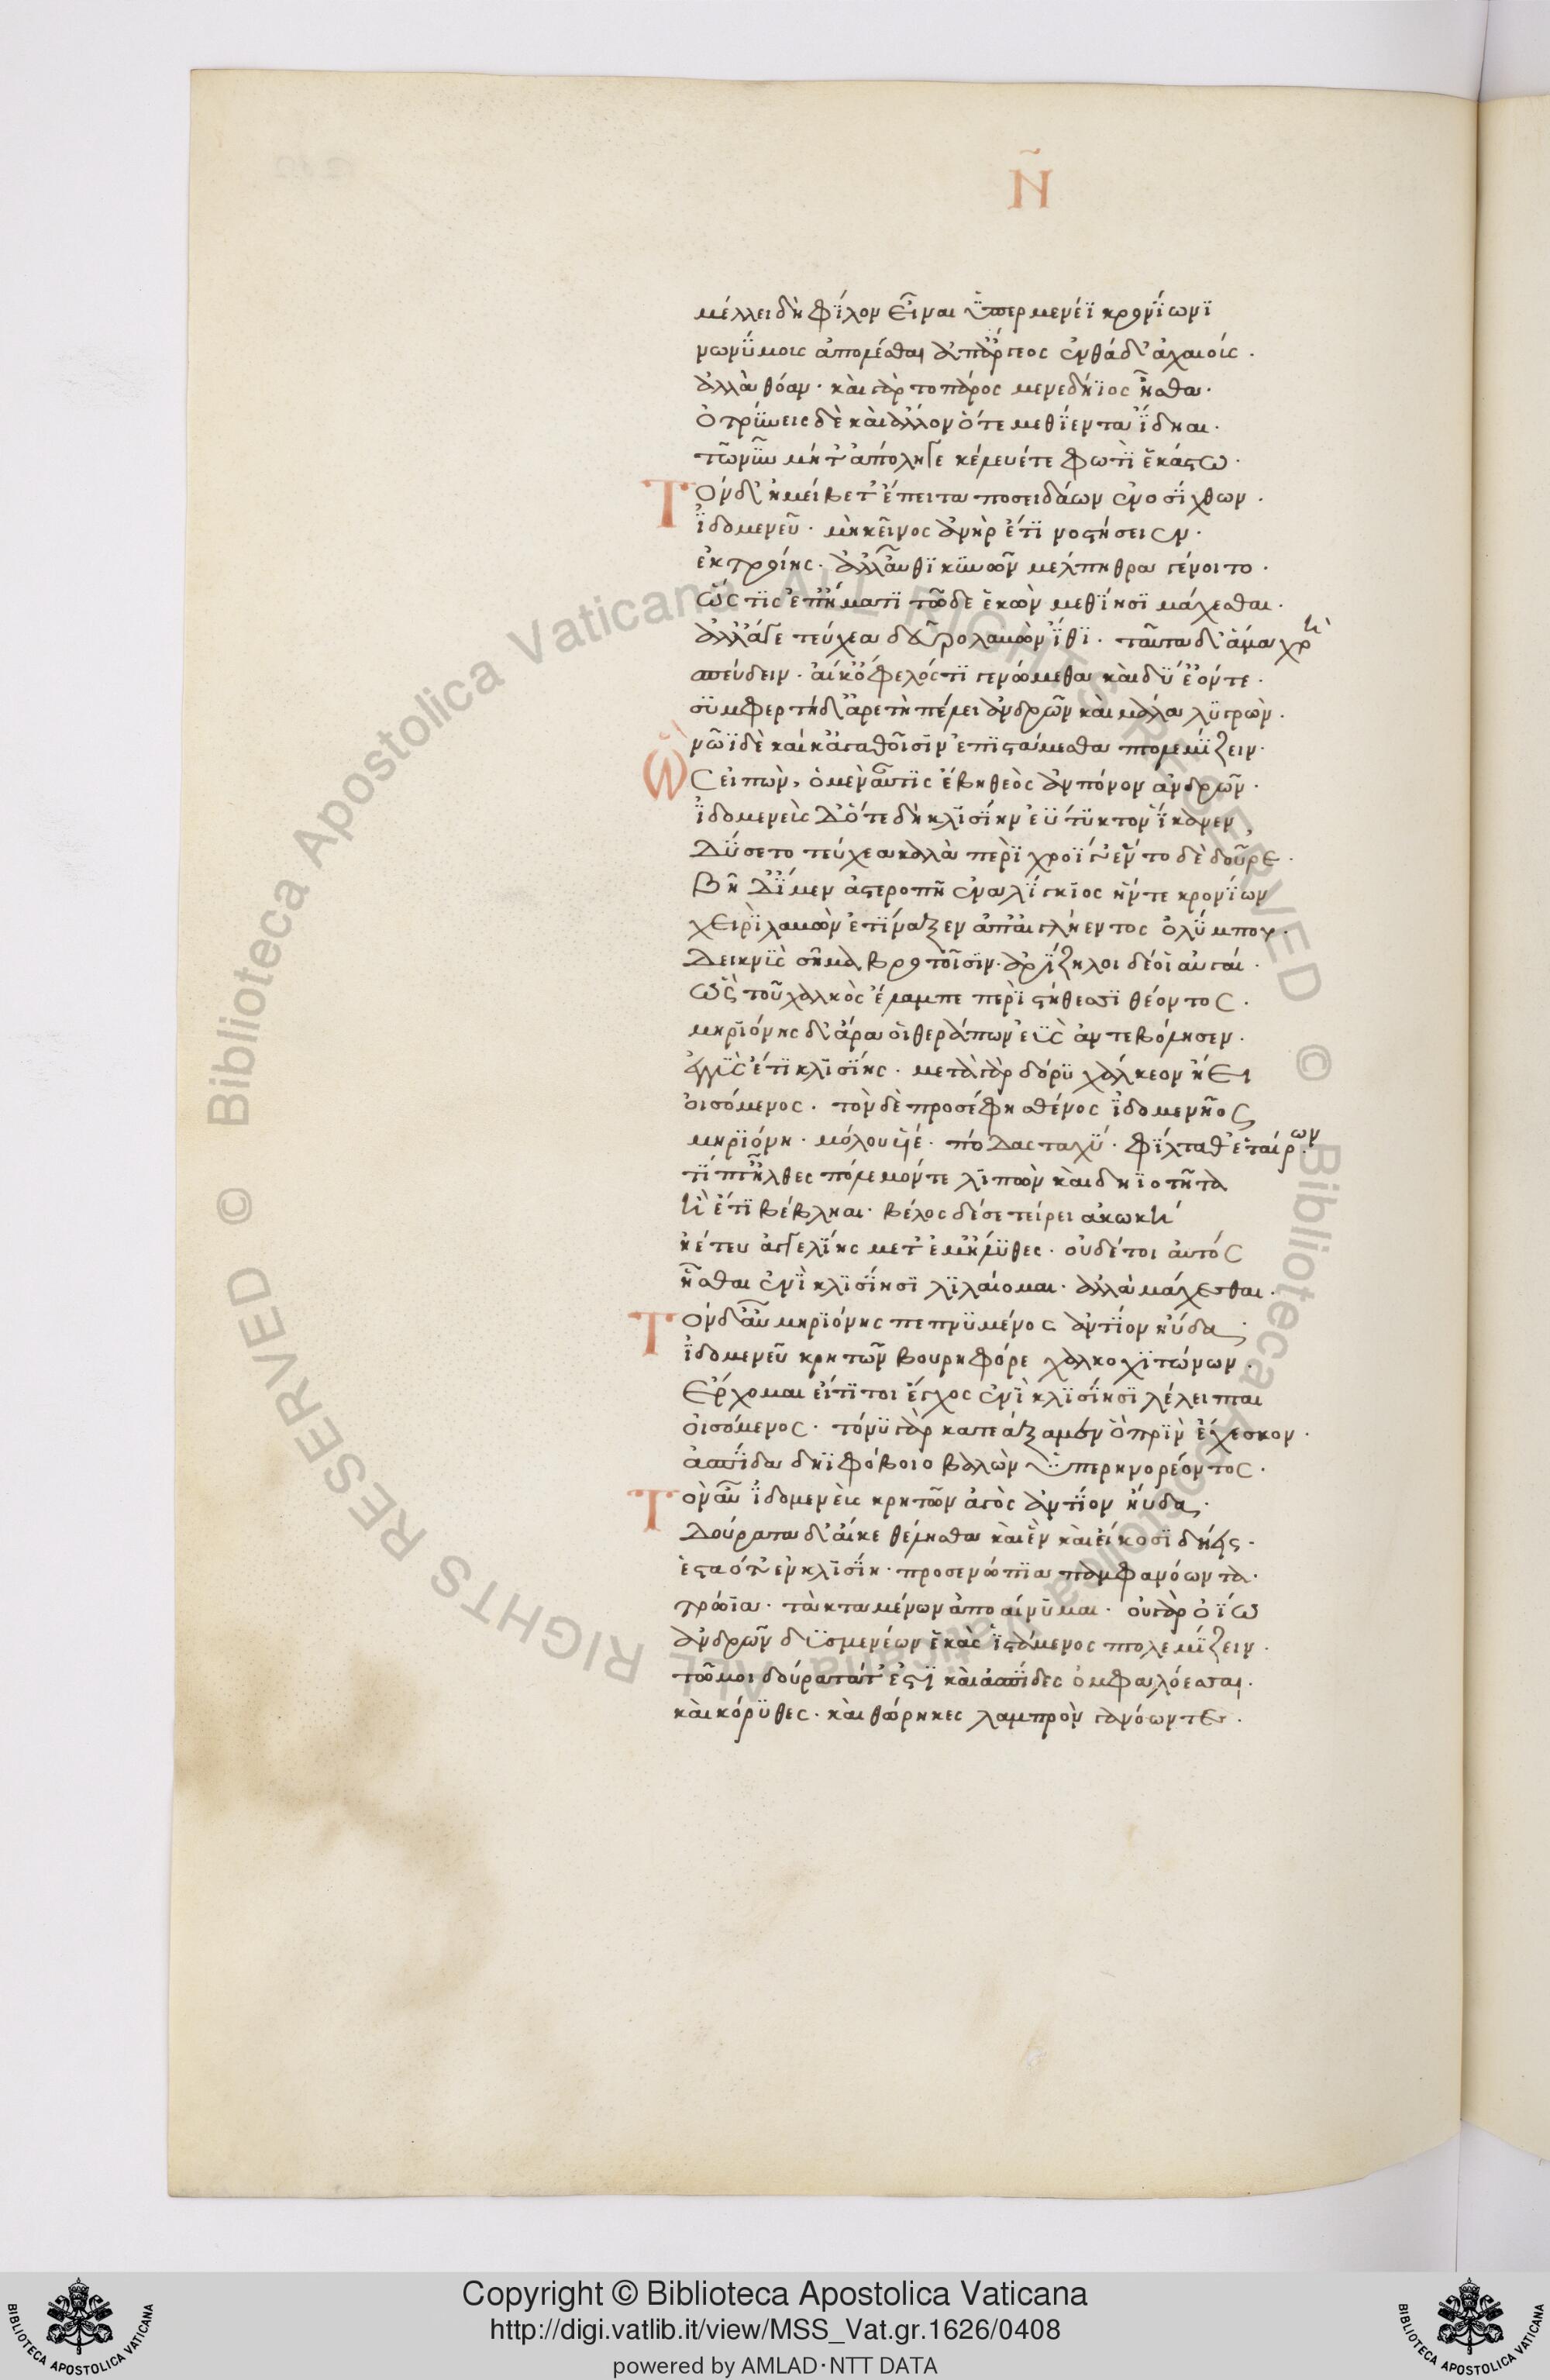 Ν̃
μέλλει δὴ φΐλον εἶναι ϋπερμενέϊ κρονΐωνϊ
νωνΰμοις ἀπολέσθαι ἀπάργεος ἐνθάδ' ἀχαιοίς.
ἀλλὰ θόαν· καὶ γὰρ τοπάρος μενεδήϊος ἦσθα·
ὀτρΰνεις δὲ καὶ ἄλλον ὅτε μεθΐεντα ΐδηαι·
τῶ νῦν μήτ' ἀπόληγε κέλευέτε φωτῒ ἑκάστω·
Τὸν δ' ἠμείβετ' ἔπειτα ποσειδάων ἐνοσΐχθων·
ΐδομενεῦ· μὴ κεῖνος ἀνὴρ ἔτϊ νοστήσειεν·
ἐκ τροίης· ἀλλ' αὖθϊ κϋνῶν μέλπηθρα γένοιτο·
ὥς τϊς ἐπ' ἤματϊ τῶδε ἑκὼν μεθΐησϊ μάχεσθαι·
ἀλλ' ἄγε τεύχεα δεῦρο λαβὼν ΐθϊ· ταῦτα δ' ἅμα χρὴ
σπεύδειν· αἴκ' ὄφελός τϊ γενώμεθα καὶ δΰ' ἐόντε·
σϋμφερτὴ δ' ἀρετὴ πέλει ἀνδρῶν καὶ μάλα λϋγρῶν·
νῶϊ δὲ καί κ' ἀγαθοῖσϊν ἐπϊσταίμεσθα πτολεμΐζειν·
Ὣς εἰπὼν, ὁ μὲν αὖτϊς ἔβη θεὸς ἀν πόνον ἀνδρῶν·
ΐδομενεὺς δ' ὅτε δὴ κλϊσΐην ἐΰτϋκτον ΐκανεν
Δΰσετο τεύχεα καλὰ περῒ χροῒ γέντο δὲ δοῦρε·
Βῆ δ' ΐμεν ἀστεροπῆ ἐναλΐγκϊος ἥντε κρονΐων
χειρῒ λαβὼν ἐτΐναξεν ἀπ' αἰγλήεντος ὀλΰμπου·
Δεικνῢς σῆμα βροτοῖσϊν· ἀρΐζηλοι δέ οἱ αὐγαί·
ὣς τοῦ χαλκὸς ἔλαμπε περῒ στήθεσϊ θέοντος·
μηρϊόνης δ' ἄρα οἱ θεράπων ἐῢς ἀντεβόλησεν·
ἐγγῢς ἔτϊ κλϊσΐης· μετὰ γὰρ δόρϋ χάλκεον ἤει
οἰσόμενος· τὸν δὲ προσέφη σθένος ΐδομενῆος
μηρϊόνη· μόλου ϋἱέ· πόδας ταχΰ· φΐλταθ' ἑταίρων·
τΐπτ' ἦλθες πόλεμόντε λϊπὼν καὶ δηϊοτῆτα
ἠὲ ἔτϊ βέβληαι· βέλος δέ σε τείρει ἀκωκὴ
ἠέ τευ ἀγγελΐης μετ' ἔμ' ἤλϋθες· οὐδέτοι αὐτὸς
ἧσθαι ἐνῒ κλϊσΐησϊ λϊλαίομαι· ἀλλὰ μάχεσθαι·
Τὸν δ' αὖ μηρϊόνης πεπνϋμένος ἀντΐον ηὔδα·
ΐδομενεῦ κρητῶν βουρηφόρε χαλκοχϊτώνων·
Ἔρχομαι εἴτϊ τοι ἔγχος ἐνῒ κλϊσΐησϊ λέλειπται
οἰσόμενος· τόνϋ γὰρ κατεάξαμεν ὃ πρῒν ἔχεσκον·
ἀσπΐδα δηϊφόβοιο βαλὼν ϋπερηνορέοντος·
Τὸν αὖ ΐδομενεὺς κρητῶν ἀγὸς ἀντΐον ηὔδα·
Δούρατα δ' αἴκε θέλησθα καὶ ἓν καὶ εἴκοσϊ δήεις·
ἑσταότ' ἐν κλϊσΐη· προσενώπϊα παμφανόωντα·
τρώϊα· τὰ κταμένων ἀποαίνϋμαι· οὐ γὰρ ὀΐω
ἀνδρῶν δϋσμενέων ἑκὰς ϊστάμενος πτολεμΐζειν·
τῶ μοι δούρατά τ' ἐστΐ καὶ ἀσπΐδες ὀμφαλόεσσαι·
καὶ κόρϋθες· καὶ θώρηκες λαμπρὸν γανόωντες·
Copyright © Biblioteca Apostolica Vaticana
http://digi.vatlib.it/view/MSS_Vat.gr.1626/0408
powered by AMLAD·NTT DATA